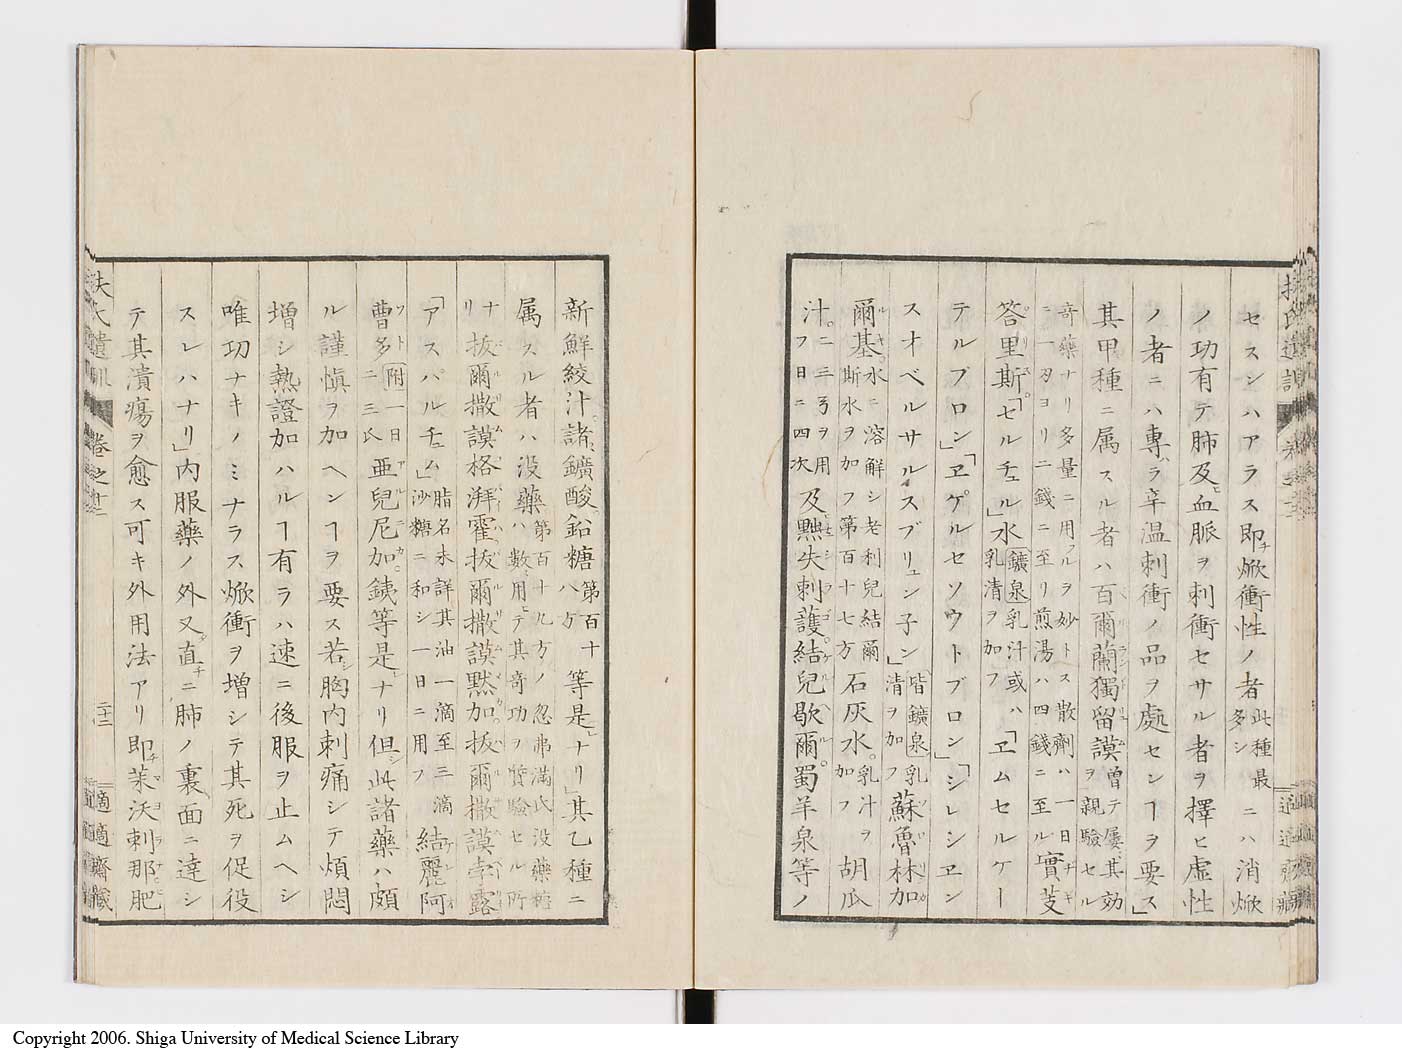 セスンハアラス即チ焮衝性ノ者此種最多シニハ消焮
ノ功有テ肺及ヒ血脈ヲ刺衝セサル者ヲ擇ヒ虚性
ノ者ニハ專ハラ辛温刺衝ノ品ヲ處センヿヲ要ス」
其甲種ニ属スル者ハ百爾蘭獨留謨曽テ屡其効ヲ親験セル
奇藥ナリ多量ニ用フルヲ妙トス散劑ハ一日ニ一匁ヨリ二錢ニ至リ煎湯ハ四錢ニ至ル實芰
答里斯「セルチェル」水鑛泉乳汁或ハ乳清ヲ加フ「ヱムセルケー
テルブロン」「ヱゲルセソウトブロン」「シレシヱン
スオベルサルスブリュン子ン」皆鑛泉乳清ヲ加フ蘇魯林加
爾基水ニ溶解シ老利兒結爾斯水ヲ加フ第百十七方石灰水乳汁ヲ加フ胡瓜
汁二三弖ヲ用フ日ニ四次及㸃失刺護結兒歇爾蜀羊泉等ノ
新鮮絞汁諸鑛酸鉛糖第百十八方等是ナリ」其乙種ニ
属スル者ハ没藥第百十九方ノ忽弗満氏没藥糖ハ數用ヒテ其奇功ヲ實驗セル所ナ
リ拔爾撒謨格湃霍拔爾撒謨黙加拔爾撒謨孛露
「アスパルチェム」脂名未詳其油一滴至三滴沙糖ニ和シ一日ニ用フ結麗阿
曹多二三氏附一日亜兒尼加鋏等是ナリ但シ此諸藥ハ頗
ル謹愼ヲ加ヘンヿヲ要ス若シ胸内刺痛シテ煩悶
増シ熱證加ハルヿ有ラハ速ニ後服ヲ止ムヘシ
唯功ナキノミナラス焮衝ヲ増シテ其死ヲ促役
スレハナリ」内服藥ノ外又直チニ肺ノ裏面ニ達シ
テ其潰瘍ヲ愈ス可キ外用法アリ即チ苿沃刺那肥
扶氏遺訓
卷之十二
二十二
適適齋藏
Copyright 2006. Shiga University of Medical Science Library